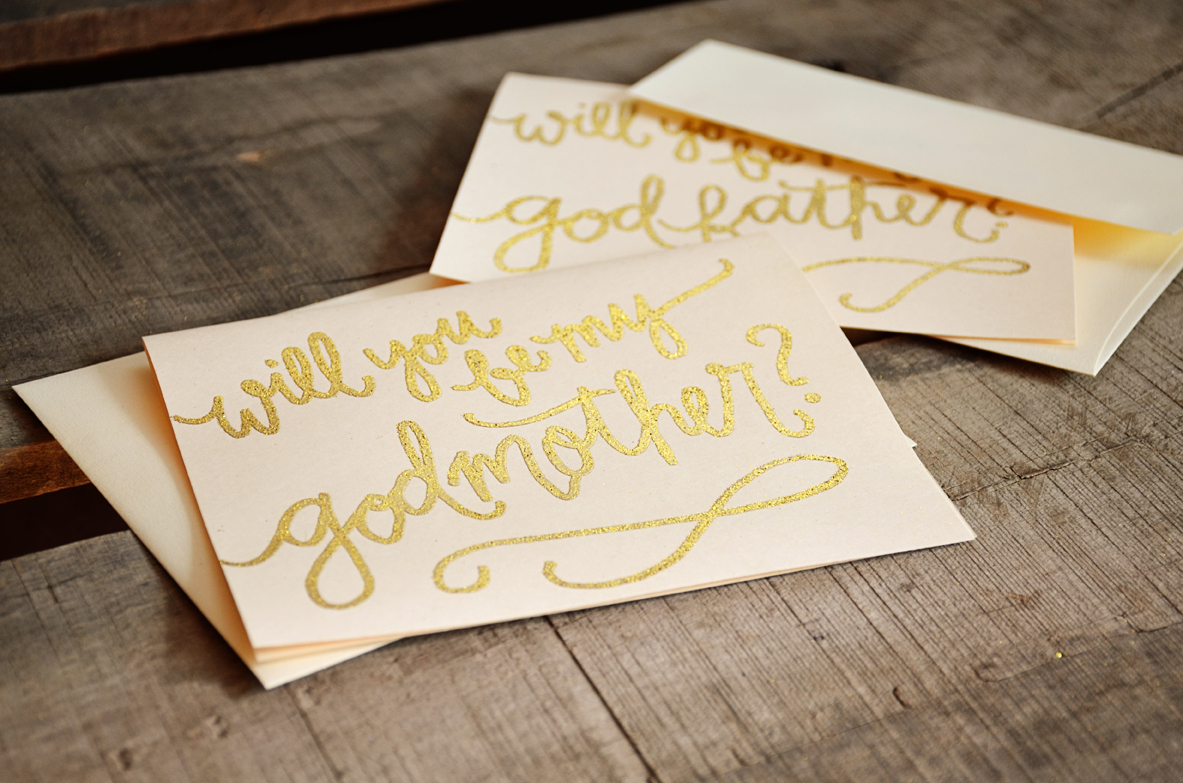 will you be my
godmother?
will you be
godfather?